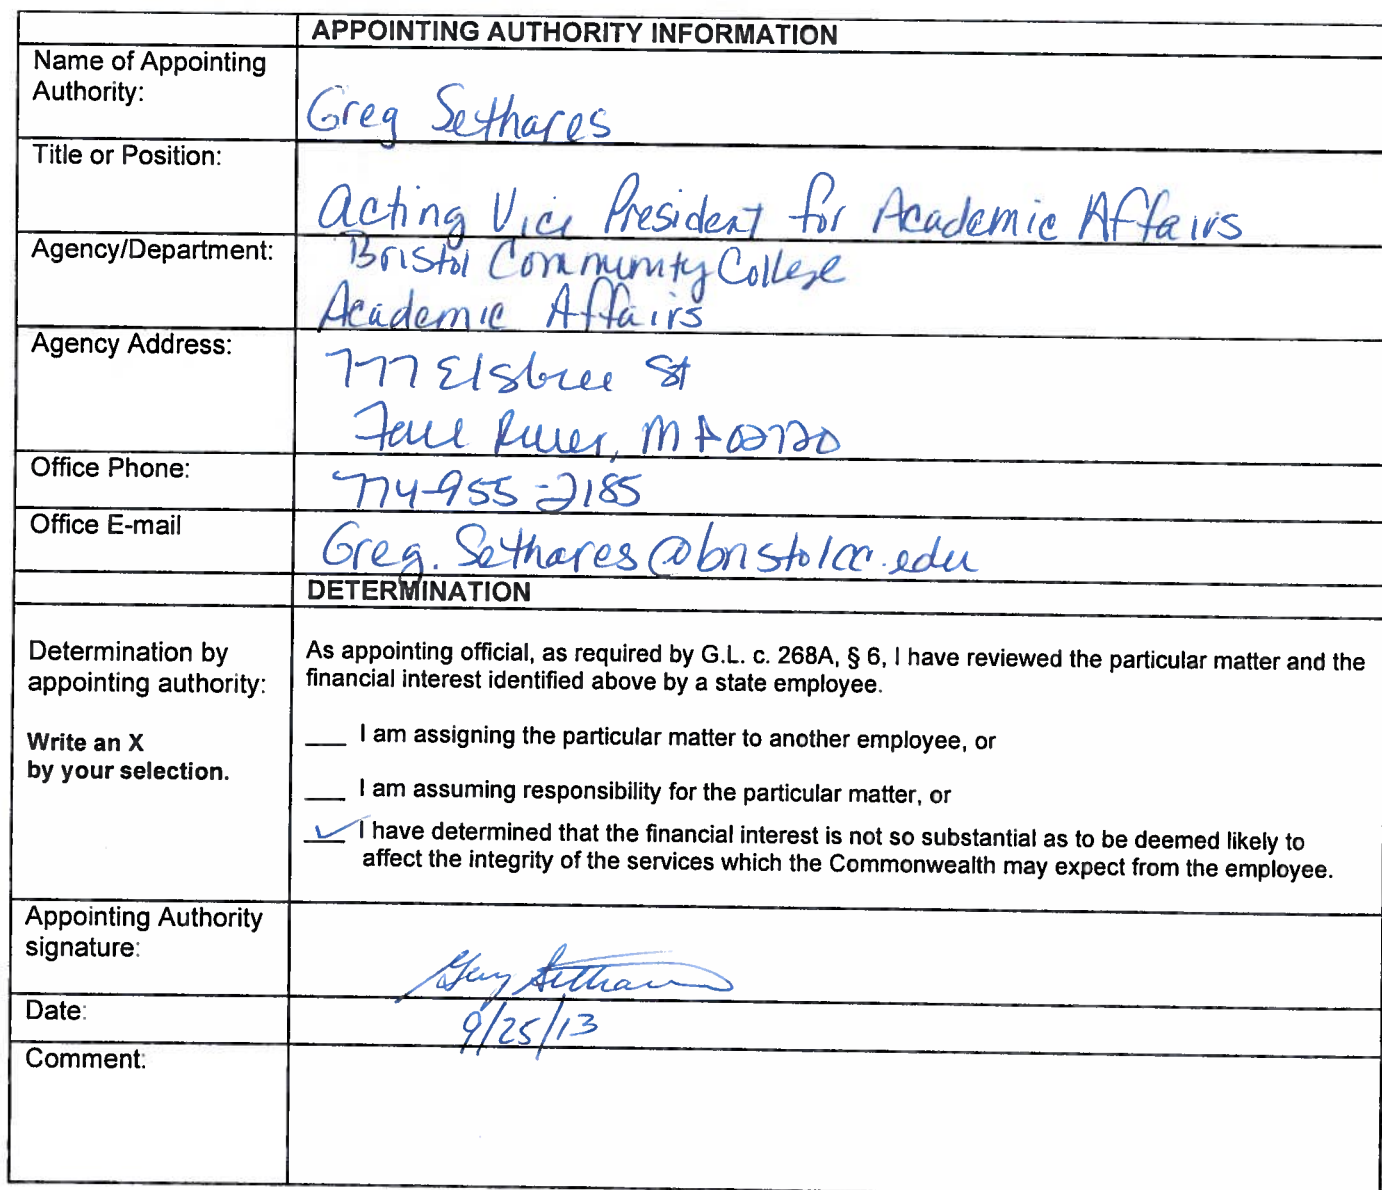 APPOINTING AUTHORITY INFORMATION
Name of Appointing
Authority:
Greg Sethares
Title or Position:
Acting Vice President for Academic Affairs
Agency/Department:
Bristol Community College
Academic Affairs
Agency Address:
777 Elsbree St
Fall River, MA 02720
Office Phone:
774-955-2185
Office E-mail
Greg.Sethares@bristolcc.edu
DETERMINATION
Determination by
appointing authority:
Write an X
by your selection.
As appointing official, as required by G.L. c. 268A, § 6, I have reviewed the particular matter and the
financial interest identified above by a state employee.
___ I am assigning the particular matter to another employee, or
___ I am assuming responsibility for the particular matter, or
✓ I have determined that the financial interest is not so substantial as to be deemed likely to
affect the integrity of the services which the Commonwealth may expect from the employee.
Appointing Authority
signature:
Greg Sethares
Date:
9/25/13
Comment: